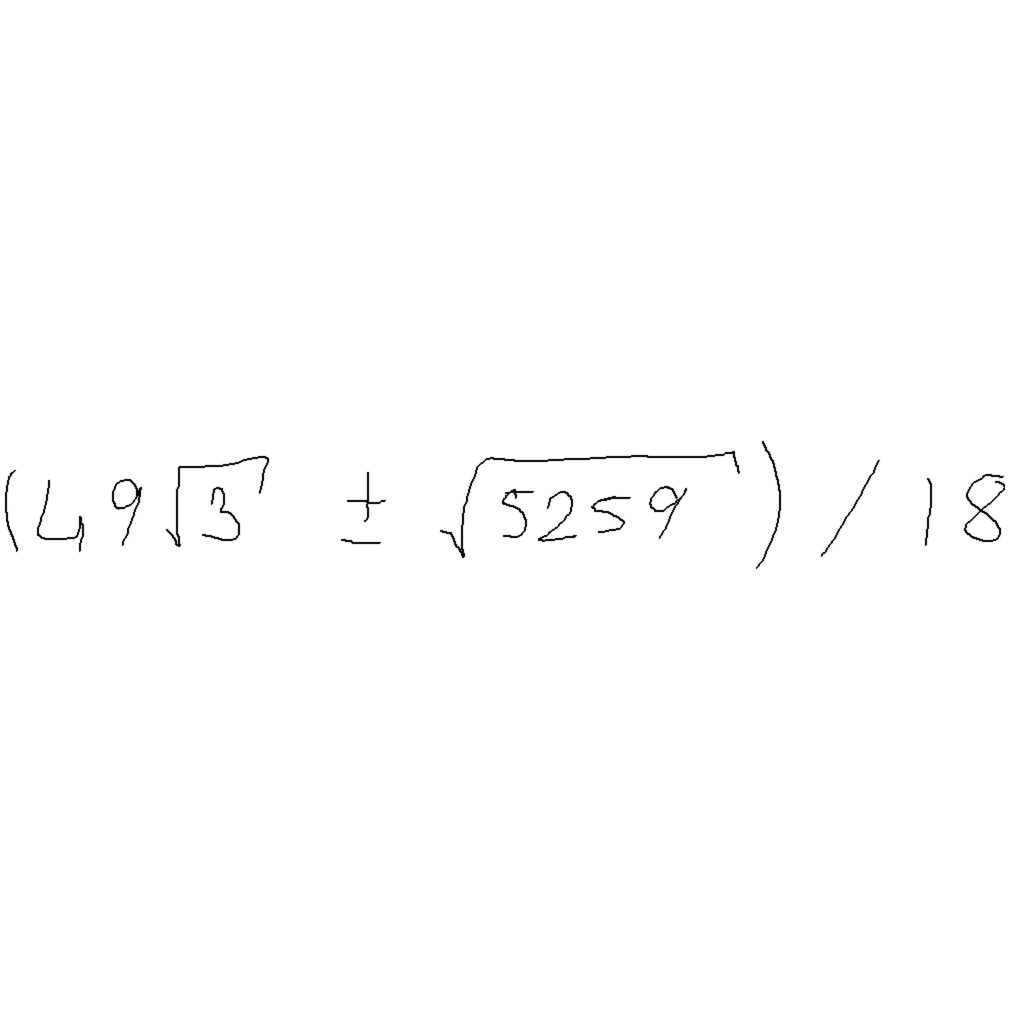 (49√3 ± √5259) / 18